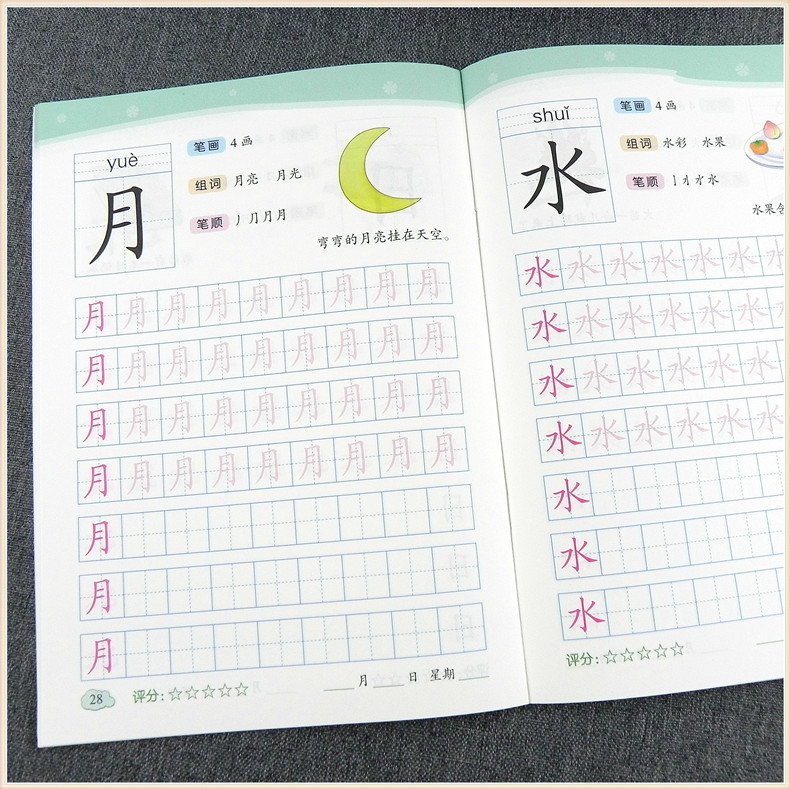 yuè
月
笔画 4画
组词 月亮 月光
笔顺 丿 ⺆ 月 月
弯弯的月亮挂在天空。
月 月 月 月 月 月 月 月 月
月 月 月 月 月 月 月 月 月
月 月 月 月 月 月 月 月 月
月 月 月 月 月 月 月 月 月
月
月
月
28 评分:☆☆☆☆☆ 月 日 星期
shuǐ
水
笔画 4画
组词 水彩 水果
笔顺
水果
水 水 水 水 水 水 水
水 水 水 水 水 水 水
水 水 水 水 水 水
水 水 水 水 水 水
水
水
水
评分:☆☆☆☆☆